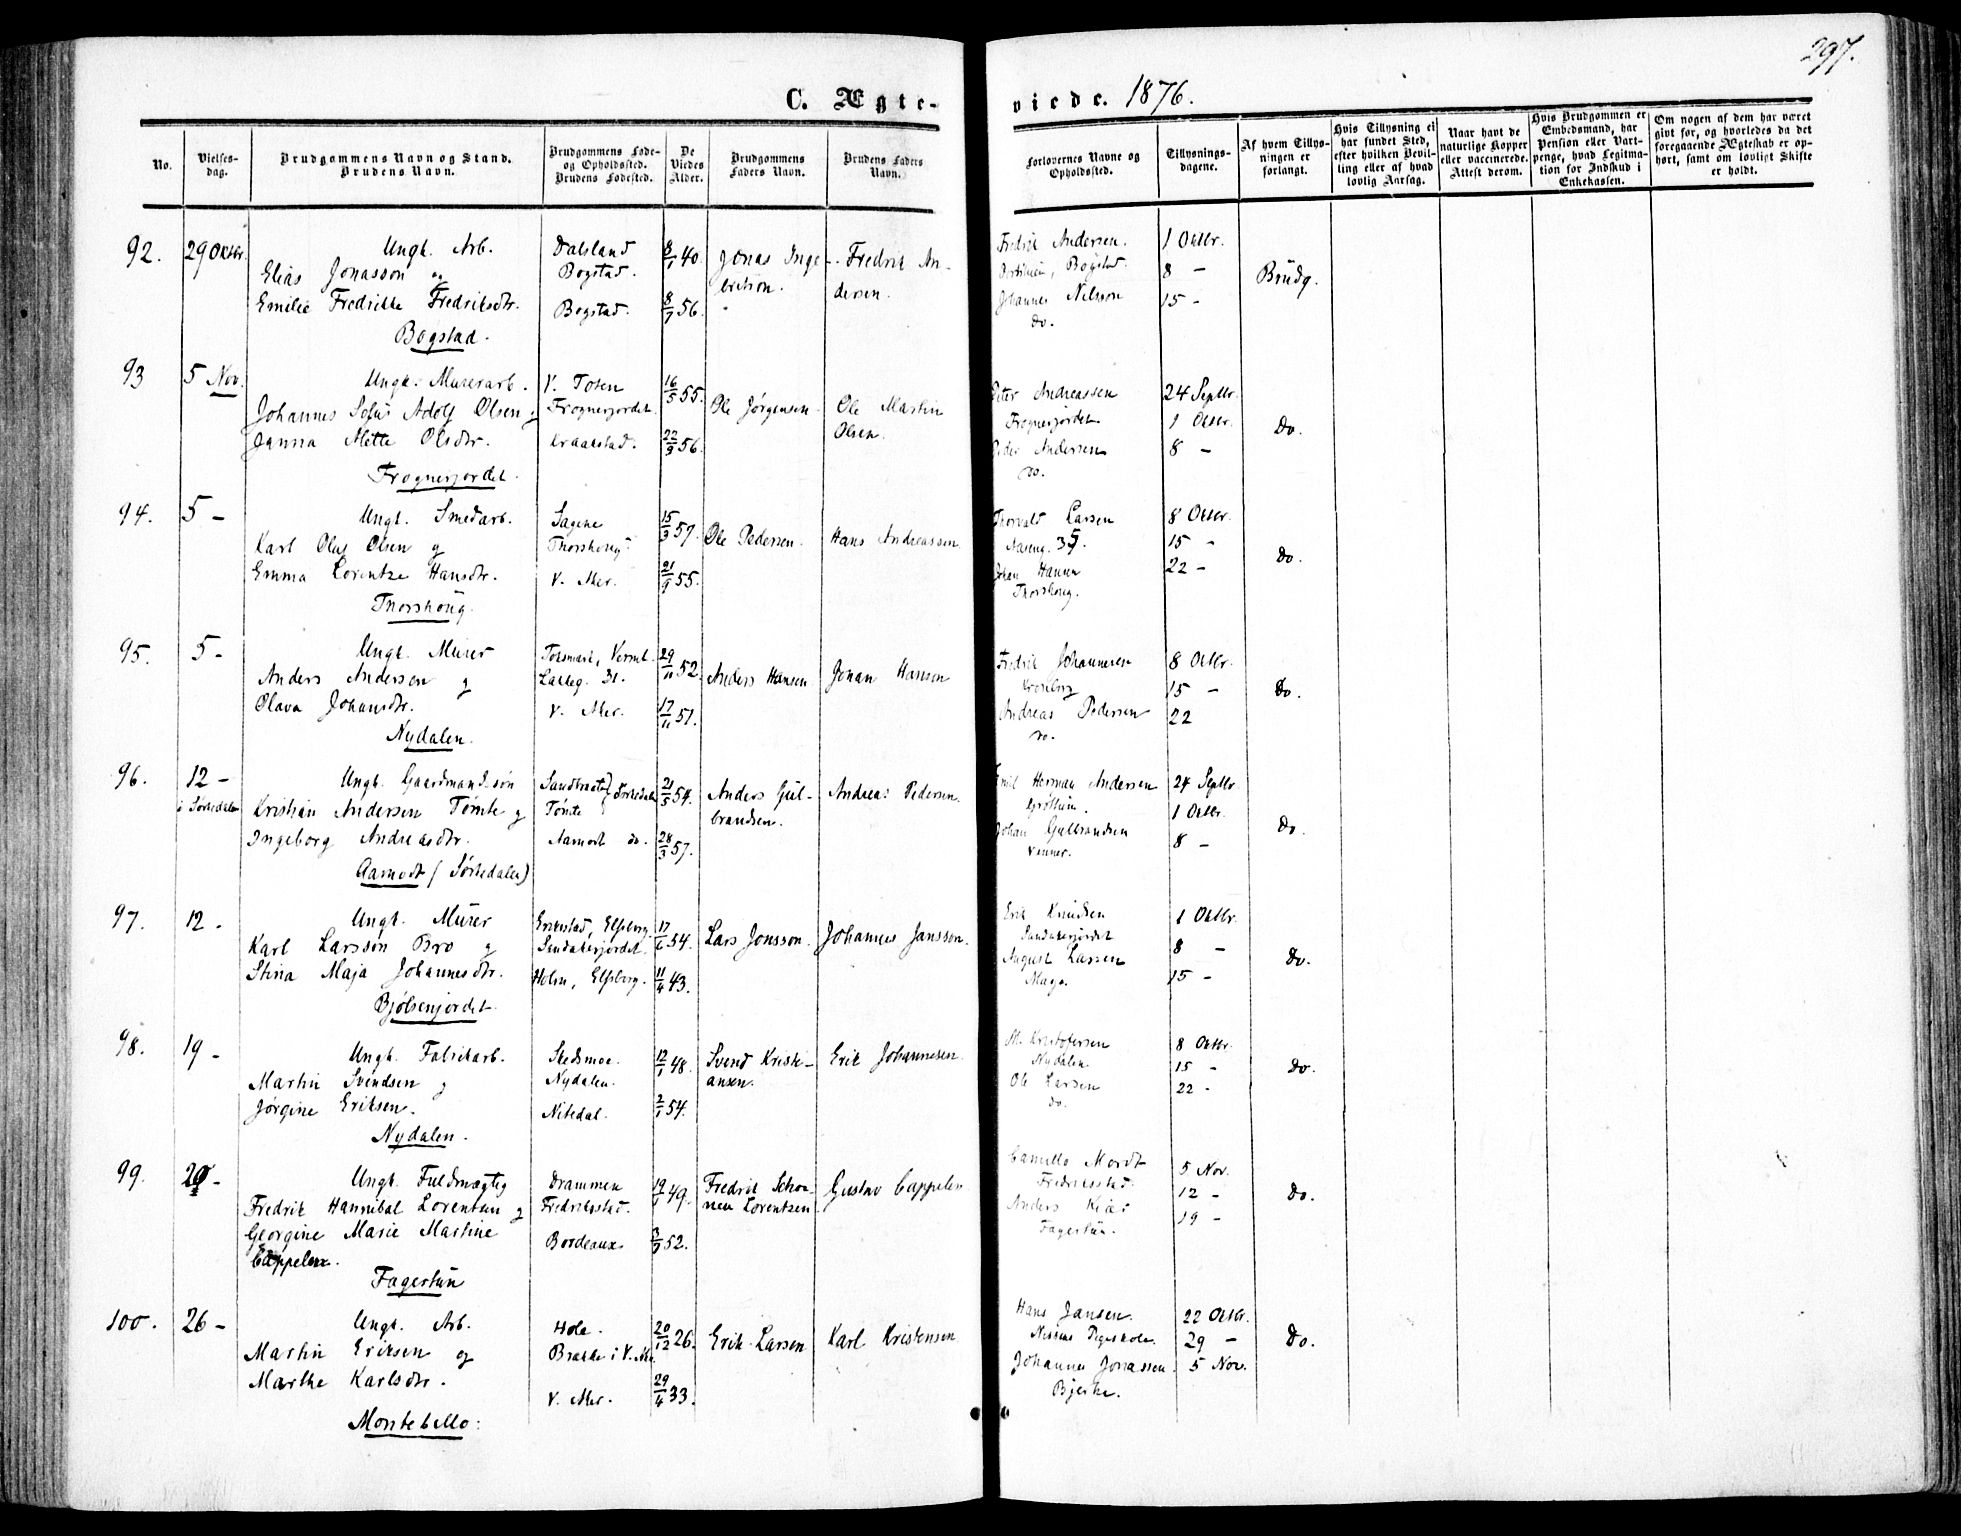 297.
C. Ægte-
viede. 1876.
No.
Vielses-
dag.
Brudgommens Navn og Stand.
Brudens Navn.
Brudgommens Føde-
og Opholdssted.
Brudens Fødested.
De
Viedes
Alder.
Brudgommens
Faders Navn.
Brudens Faders
Navn.
Forlovernes Navne og
Opholdssted.
Tillysnings-
dagene.
Af hvem Tillys-
ningen er
forlangt.
Hvis Tillysning ei
har fundet Sted,
efter hvilken Bevil-
ling eller af hvad
lovlig Aarsag.
Naar havt de
naturlige Kopper
eller vaccinerede.
Attest derom.
Hvis Brudgommen er
Embedsmand, har
Pension eller Vart-
penge, hvad Legitima-
tion for Indskud i
Enkekassen.
Om nogen af dem har været
givt før, og hvorledes da det
foregaaende Ægteskab er op-
hørt, samt om lovligt Skifte
er holdt.
92. 29 Oktbr. Ungk. Arb. Dalsland 8/1 40. Jonas Inge- Fredrik An- Fredrik Andersen. 1 Oktbr.
Elias Jonasson og Bogstad. britson. dersen. Bogstad. 8 - Brudg.
Emilie Fredrikke Fredriksdtr. Bogstad. 8/1 56. Johannes Nilsson 15 -
Bogstad. do.
93 5 Nov. Ungk. Murerarb. V. Toten 16/5 55. Ole Jørgensen. Ole Martin Peter Andreassen 24 Septbr.
Johannes Sofus Adolf Olsen og Frognerjordet. Olsen. Frognerjordet 1 Oktbr. Do.
Janna Mette Olsdtr. Kraakstad. 22/3 56. Peder Andersen 8 -
Frognerjordet. do.
94. 5 - Ungk. Smedarb. Sagene 15/3 57. Ole Pedersen. Hans Andreassen Thorvald Larsen 8 Oktbr.
Karl Olaf Olsen og Thorshoug. 35. 15 - Do.
Emma Lorentze Hansdtr. V. Aker. 21/9 55. Johan Hansen 22 -
Thorshoug. Thorshoug.
95. 5 - Ungk. Murer Torsmark, Verml. 29/11 52. Anders Hansen Johan Hanson Fredrik Johannesen 8 Oktbr.
Anders Anderson og Lakkeg. 31. Kronborg 15 - Do.
Olava Johansdtr. V. Aker. 17/11 51. Andreas Pedersen 22
Nydalen. do.
96. 12 - Ungk. Gaardmandssøn Sandbraaten Sørkedalen 21/5 54. Anders Gul- Andreas Pedersen. Emil Herman Andersen 24 Septbr
i Sørkedalen Kristian Andersen Tømte og Tømte brandsen. Grøttum. 1 Oktbr. Do.
Ingeborg Andreasdtr. Aamodt do. 28/3 57. Johan Gulbrandsen 8 -
Aamodt (Sørkedalen) Venner.
97. 12 - Ungk. Murer Erikstad, Elfsborg. 17/6 54. Lars Jonsson. Johannes Jansson. Erik Knudsen 1 Oktbr.
Karl Larsson Bro og Sandakerjordet. Sandakerjordet 8 - Do.
Stina Maja Johannesdtr. Holm, Elfsborg. 11/4 43. August Larsen 15 -
Bjølsenjordet. Maga.
98. 19 - Ungk. Fabrikarb. Skedsmoe. 12/1 48. Svend Kristi- Erik Johannesen. M. Kristofersen 8 Oktbr.
Martin Svendsen og Nydalen. ansen. Nydalen 15 - Do.
Jørgine Eriksen. Nitedal. 2/1 54. Ole Larsen 22 -
Nydalen. do.
99. 20 - Ungk. Fuldmægtig Drammen 19/1 49. Fredrik Schou- Gustav Cappelen. Camillo Mordt 5 Nov.
Fredrik Hannibal Lorentzen og Fredriksstad. nen Lorentzen Fredriksstad. 12 - Do.
Georgine Marie Martine Bordeaux 3/9 52. Anders Kiær 19 -
Cappelen. Fagertun.
Fagertun
100. 26 - Ungk. Arb. Hole. 20/12 26. Erik Larsen Karl Kristensen Hans Jansen. 22 Oktbr.
Martin Eriksen og Brakke i V. Ake Pigeskole. 29 - Do.
Marthe Karlsdtr. V. Aker. 29/4 33. Johannes Jonassen. 5 Nov.
Montebello. Bjerke.